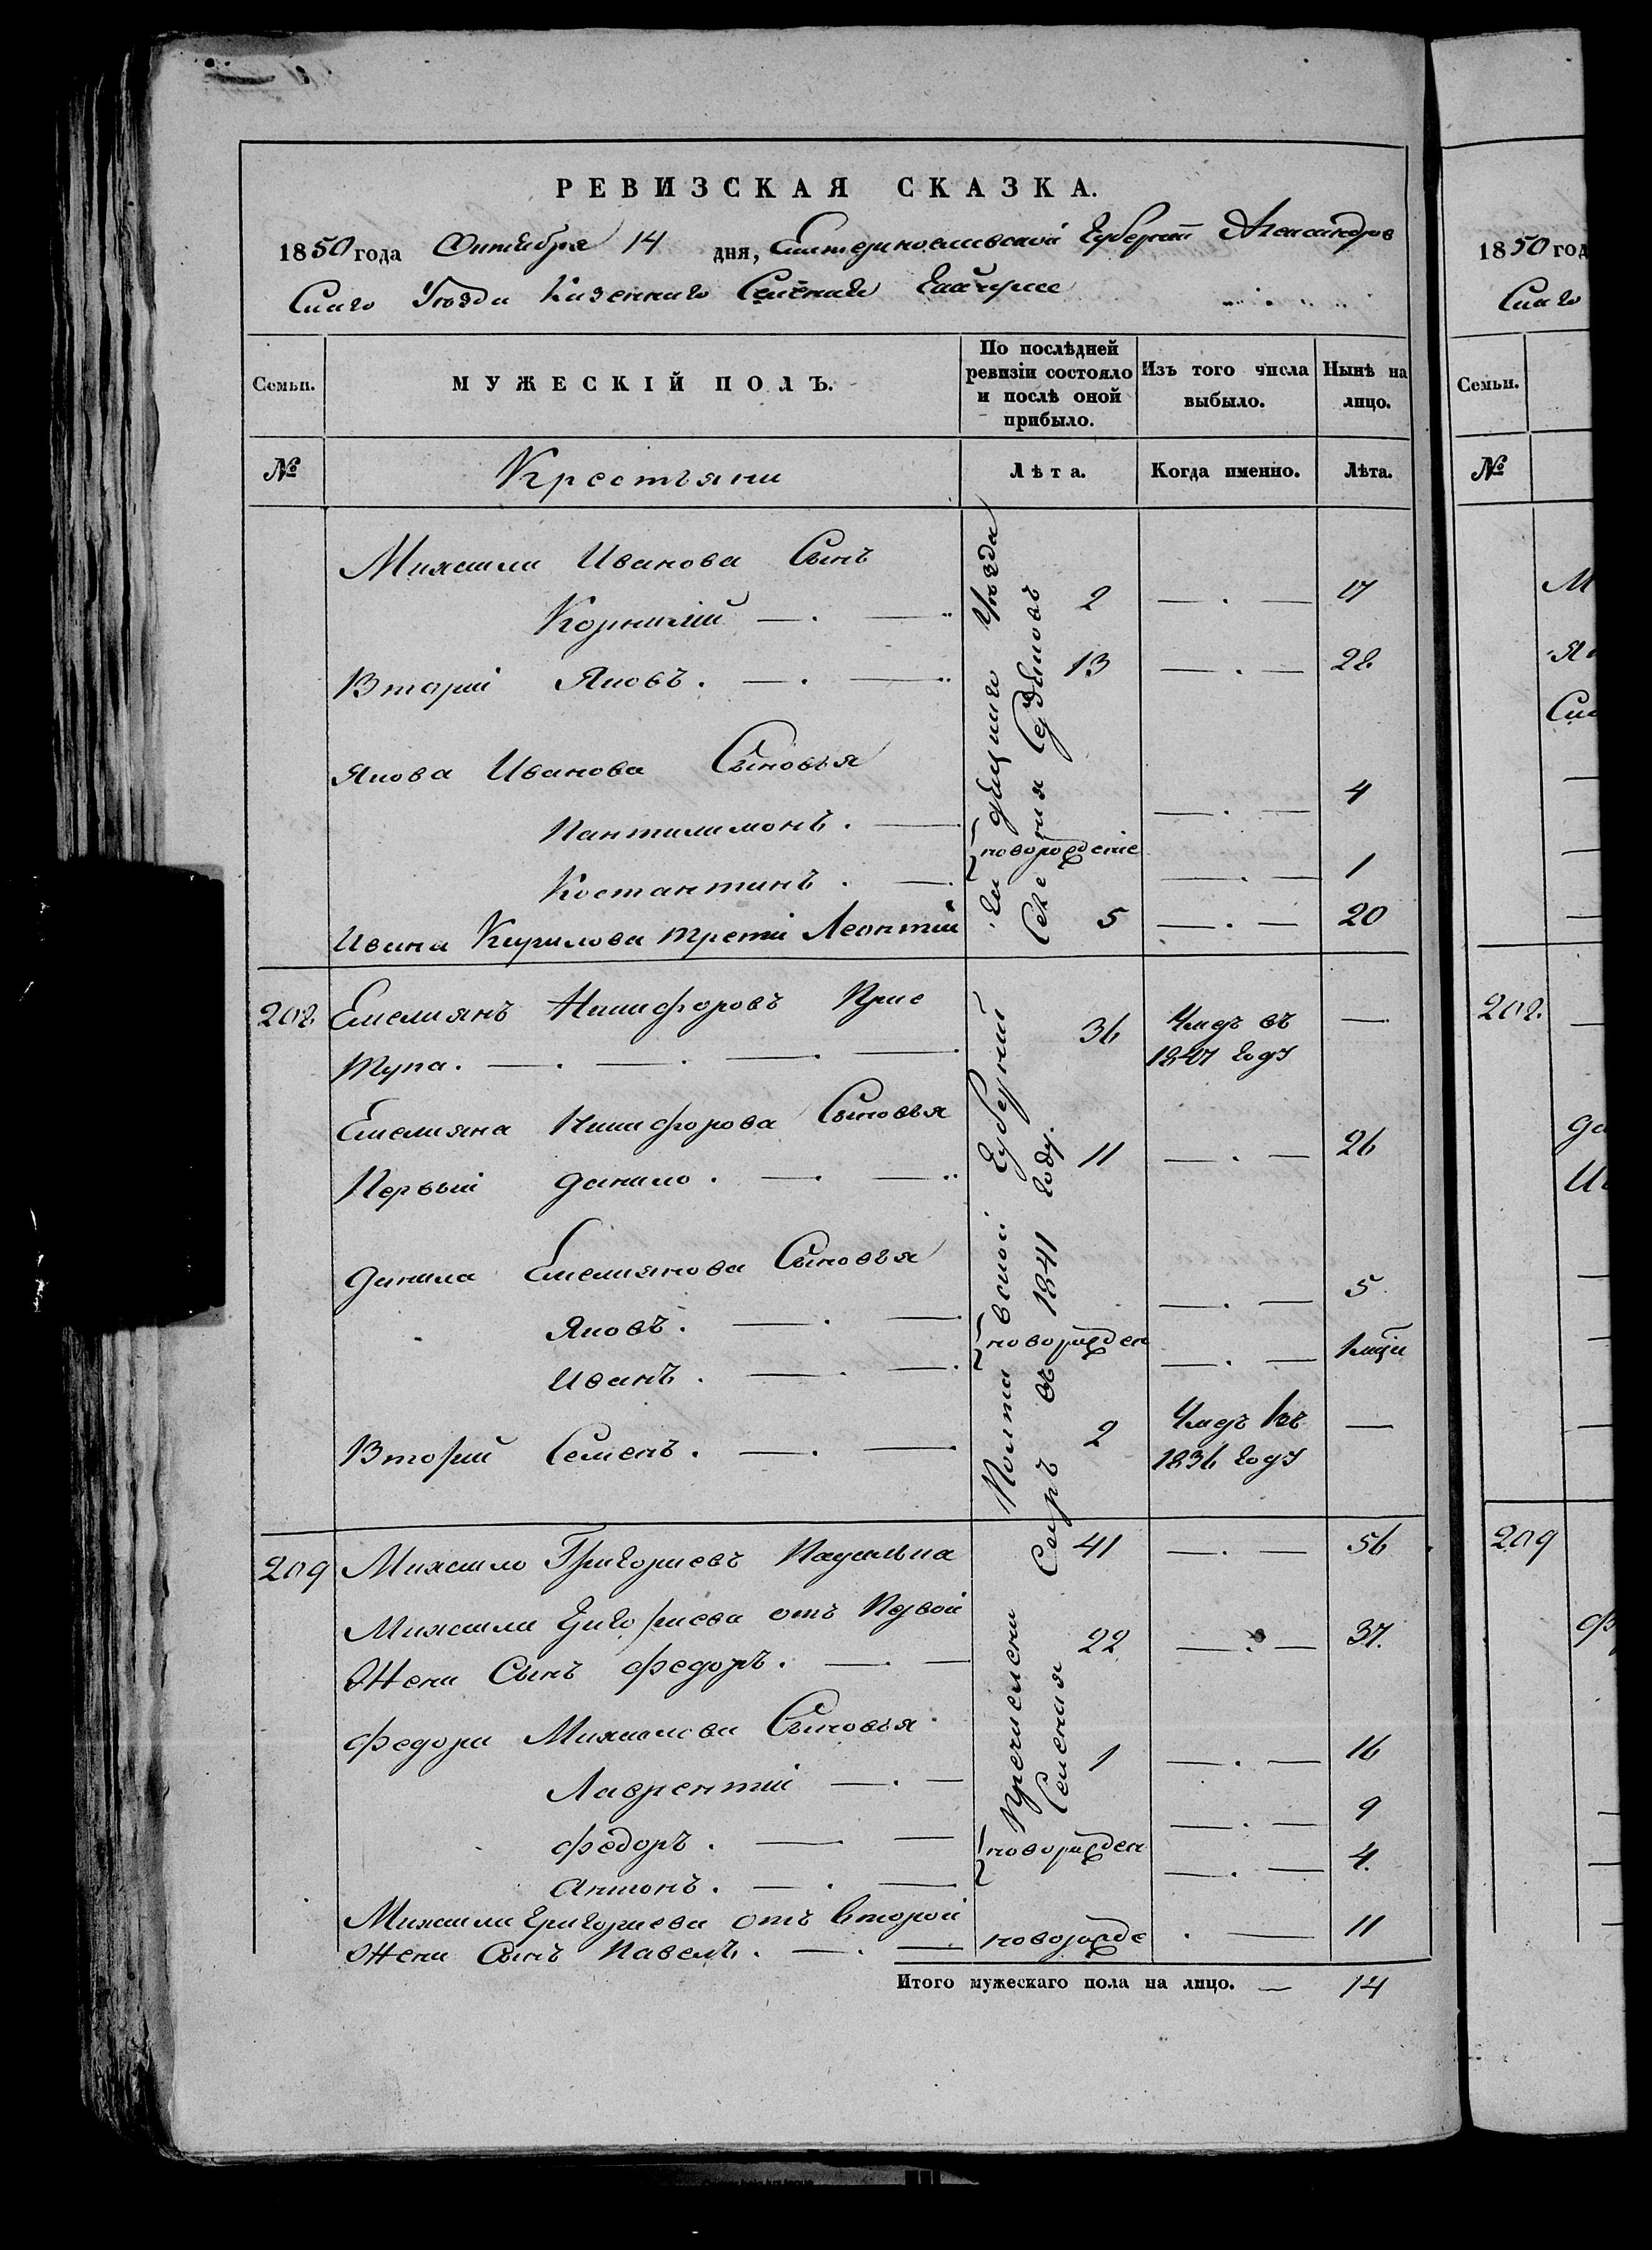 РЕВИЗСКАЯ СКАЗКА.
1850 года Октября 14 дня, Екатеринославской Губерніи Александров
Скаго Уѣзда Казеннаго Селенія Гайчула
Семьи. МУЖЕСКІЙ ПОЛЪ. По послѣдней ревизіи состояло и послѣ оной прибыло. Изъ того числа выбыло. Нынѣ на лицо.
№ Крестьяни Лѣта. Когда именно. Лѣта.
Михаила Иванова Сынъ
Корнилій — . — 2 — . — 17
Вторій Яковъ . — . — 13 — . — 28
Якова Иванова Сыновья
Пантилимонъ . — — . — 4
новорожденіе
Костантинъ . — — . — 1
Ивана Кирилова третій Леонтій 5 — . — 20
208. Емелиянъ Никифоровъ При
тупа . — . — . — . — 36 Умеръ въ 1847 году —
Емелияна Никифорова Сыновья
Первый Данило . — . — 11 — . — 26
Данила Емелиянова Сыновья
Яковъ . — . — — . — 5
новорожден
Иванъ . — . — — . —
Вторый Семенъ . — . — 2 Умеръ въ 1836 году —
209 Михаило Григориевъ 41 — . — 56
Михаила Григориева отъ Первой
Жени Сынъ Федоръ . — . — 22 — . — 37.
Федора Михаилова Сыновья
Лаврентій — . — 1 — . — 16
Федоръ . — . — — . — 9
новорожден
Антонъ . — . — — . — 4.
Михаила Григориева отъ второй
Жени Сынъ Павелъ . — . — новорожде . — 11
Уѣзда
Полтавской Губерній
въ 1841 году.
Причислени
Селения
Итого мужескаго пола на лицо. — 14
1850 год
Скаго
Семьи.
№
208.
209